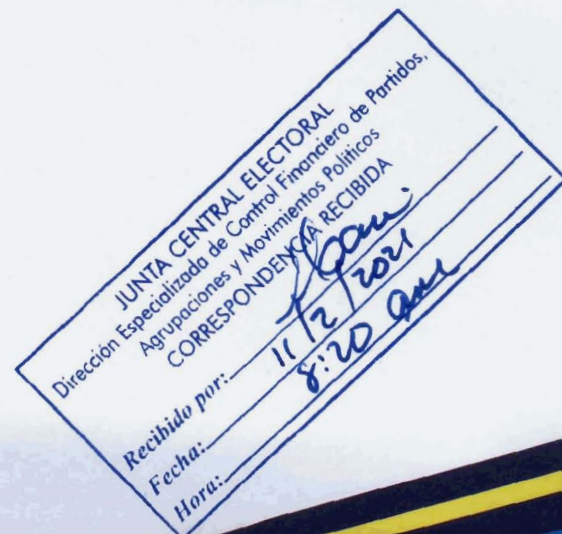 JUNTA CENTRAL ELECTORAL
Dirección Especializada de Control Financiero de Partidos,
Agrupaciones y Movimientos Políticos
CORRESPONDENCIA RECIBIDA
Recibido por:
Fecha: 11/2/2021
Hora: 8:20 am